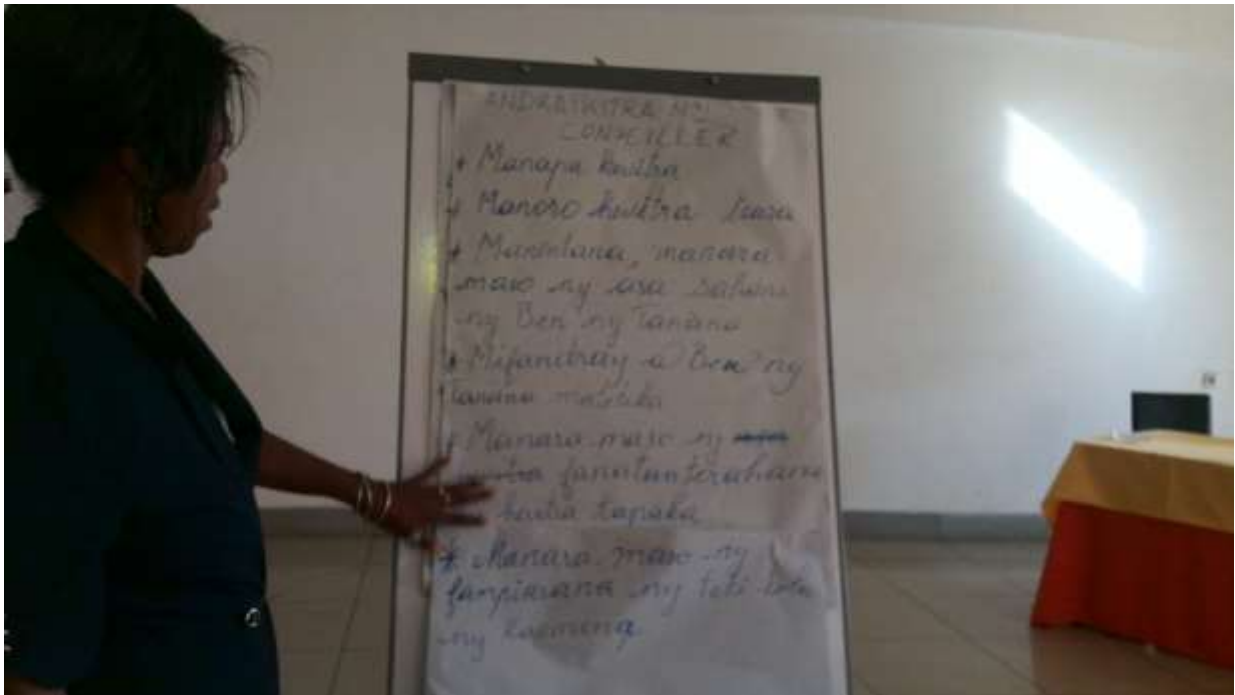 ANDRAIKITRA NY
CONSEILLER
+ Manapa kevitra
+ Manoro kevitra
+ Manentana, manara
maso ny asa
ny Ben'ny Tanana
* Mifandray a Ben'ny
Tanana
+ Manara maso ny
fanatanterahana
kevitra tapaka
* Manara maso ny
fampiarana ny teti-bola
ny Kaominina